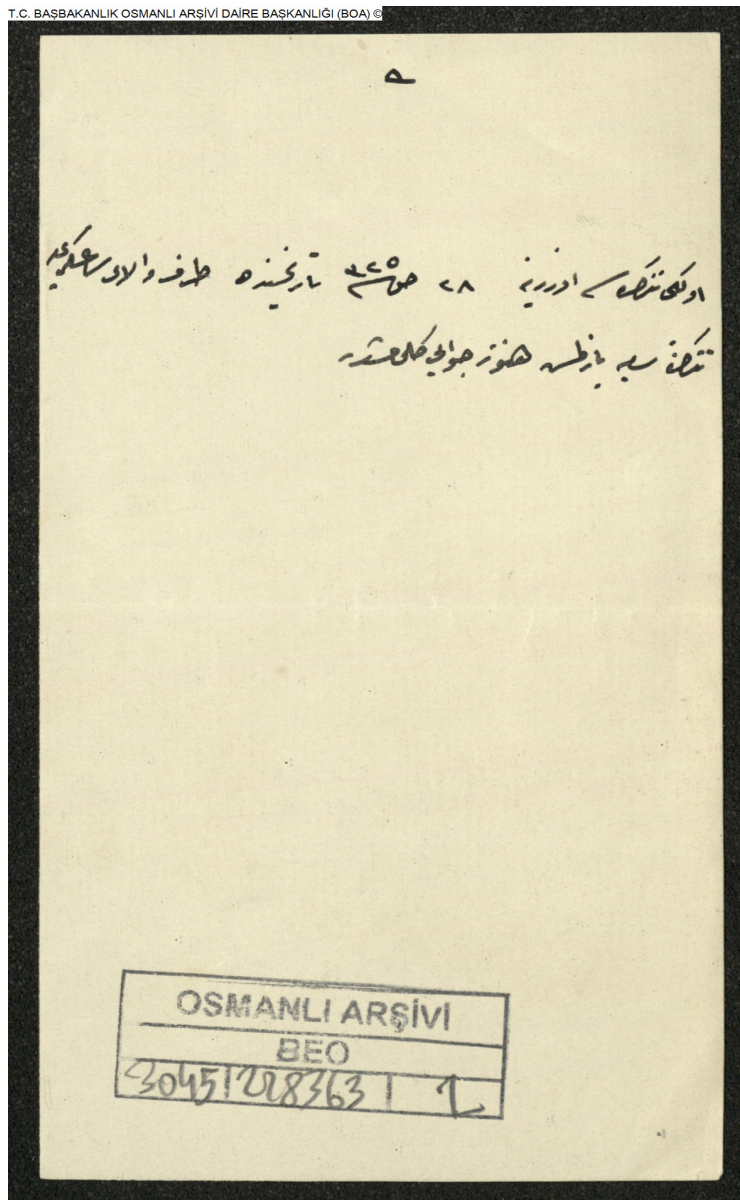 T.C. BAŞBAKANLIK OSMANLI ARŞİVİ DAİRE BAŞKANLIĞI (BOA) ©
اولكی تذكره‌سی اوزرینه ٢٨ ص سنه ٣٢٥ تاریخنده طرف والای سرعسكری‌یه
تذكره سامیه یازلمش هنوز جوابی كلمامشدر
OSMANLI ARŞİVİ
BEO
3045 | 228363 | 2